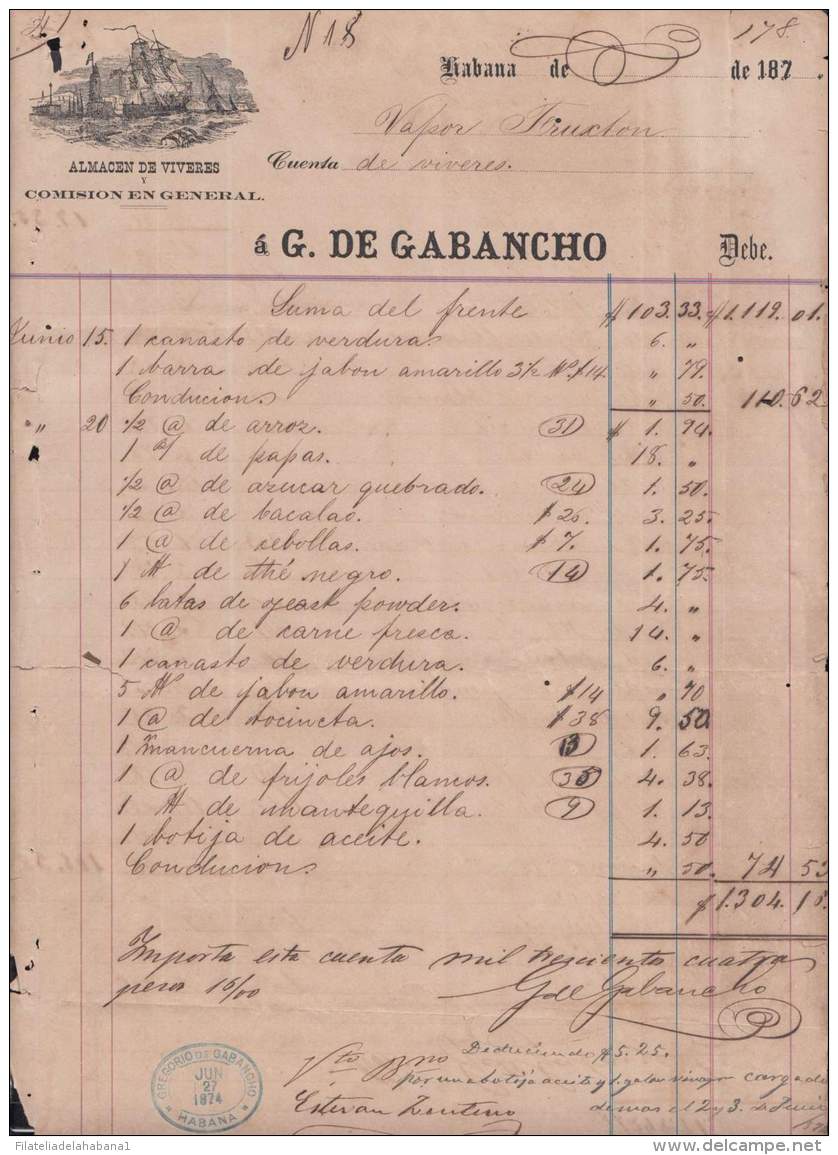 N 18
178
Habana de de 187
Vapor Truxton
ALMACEN DE VIVERES
Y
COMISION EN GENERAL.
Cuenta de viveres.
á G. DE GABANCHO Debe.
Suma del frente $ 103. 33. $1.119. 01.
Junio 15. 1 canasto de verdura. 6. "
1 barra de jabon amarillo 3 1/2 $14 " 79.
Conducions " 50. 110. 62
" 20 1/2 @ de arroz. 31 $ 1. 94.
1 de papas. 18. "
1/2 @ de azucar quebrado. 24 1. 50.
1/2 @ de bacalao. $26. 3. 25.
1 @ de cebollas. $7. 1. 75.
1 ℔ de thé negro. 14 1. 75.
6 latas de yeast powder. 4. "
1 @ de carne fresca. 14. "
1 canasto de verdura. 6. "
5 de jabon amarillo. $14 " 70
1 @ de tocineta. $38 9. 50.
1 mancuerna de ajos. 13 1. 63.
1 @ de frijoles blamos. 35 4. 38.
1 ℔ de mantequilla. 9 1. 13.
1 botija de aceite. 4. 50
Conducions " 50. 74 53
$1.304. 16.
Importa esta cuenta mil trescientos cuatro
pesos 16/00 G de Gabancho
Deduciendo $5.25.
Vto Bno por una botija aceite y 1. galon vinagre cargado
Estevan Zenteno demas el 2 y 3. de Junio
GREGORIO DE GABANCHO
JUN
27
1874
HABANA
Filateliadelahabana1